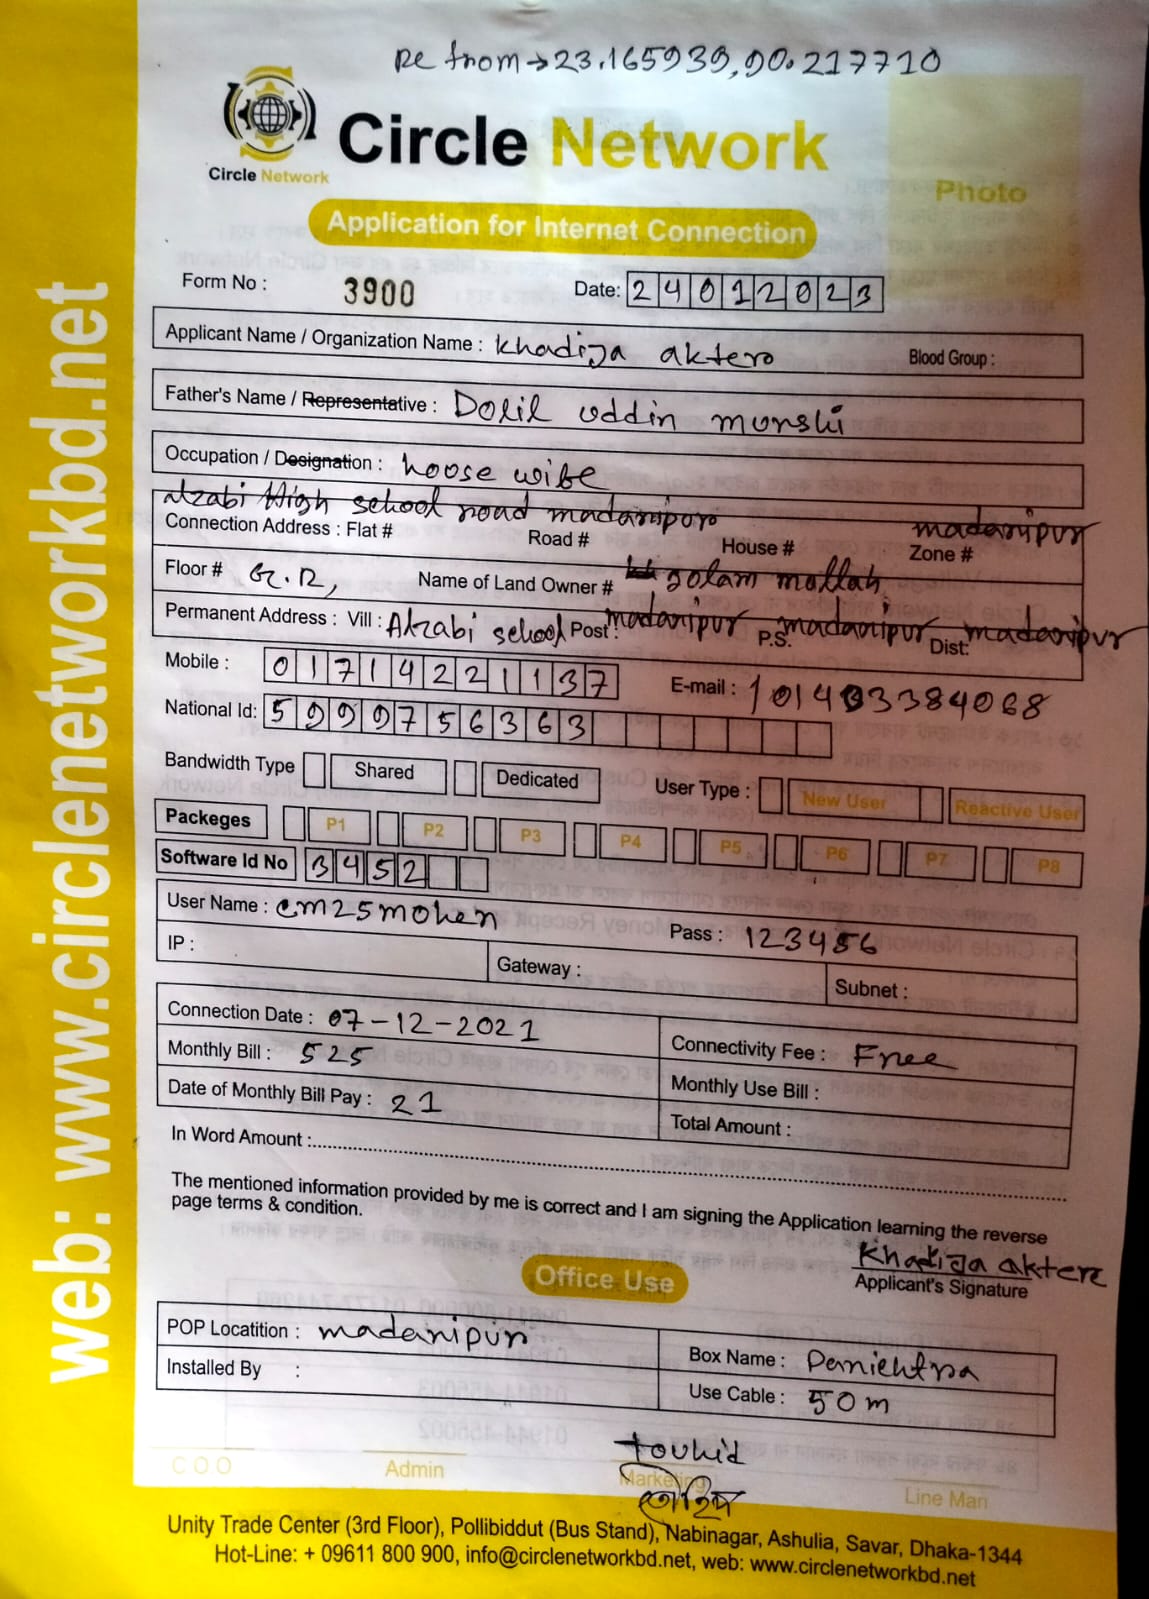 Re from → 23.165939, 90.217710
Circle Network
Circle Network
Photo
Application for Internet Connection
Form No : 3900 Date: 24012023
Applicant Name / Organization Name : Khadija aktero Blood Group :
Father's Name / Representative : Dolil uddin munshi
Occupation / Designation : hoose wife
alzabi High school road madaripur madaripur
Connection Address : Flat # Road # House # Zone #
Floor # G.R, Name of Land Owner # golam mollah
Permanent Address : Vill : Alzabi school Post : madaripur P.S. madaripur Dist: madaripur
Mobile : 01714221137 E-mail : 101403384068
National Id: 5999756363
Bandwidth Type Shared Dedicated User Type : New User Reactive User
Packeges P1 P2 P3 P4 P5 P6 P7 P8
Software Id No 3452
User Name : cm25mohen Pass : 123456
IP : Gateway : Subnet :
Connection Date : 07-12-2021 Connectivity Fee : Free
Monthly Bill : 525 Monthly Use Bill :
Date of Monthly Bill Pay : 21 Total Amount :
In Word Amount :
The mentioned information provided by me is correct and I am signing the Application learning the reverse
page terms & condition.
Khadija aktere
Applicant's Signature
Office Use
POP Locatition : madaripur Box Name :
Installed By : Use Cable : 50m
touhid
COO Admin Marketing Line Man
তৌহিদ
Unity Trade Center (3rd Floor), Pollibiddut (Bus Stand), Nabinagar, Ashulia, Savar, Dhaka-1344
Hot-Line: + 09611 800 900, info@circlenetworkbd.net, web: www.circlenetworkbd.net
web: www.circlenetworkbd.net